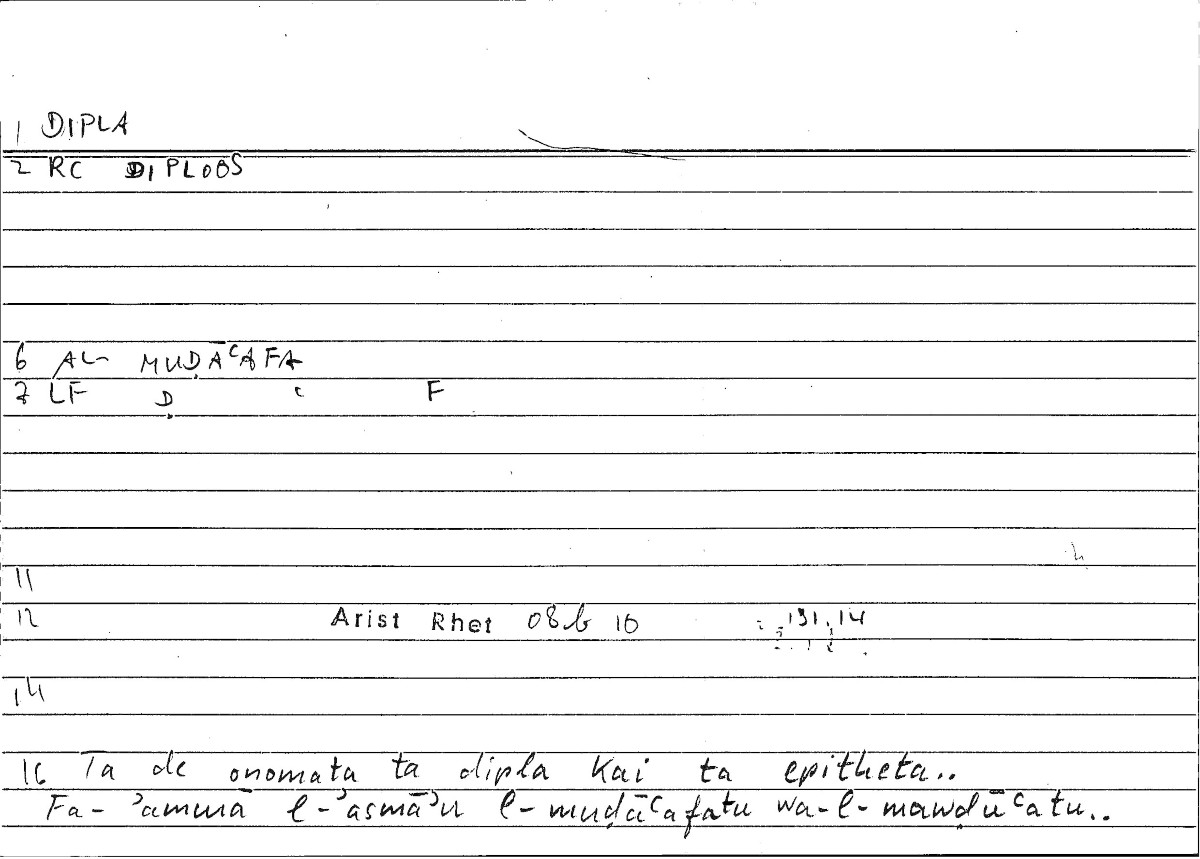 1 DIPLA
2 RC DIPLOOS
6 AL- MUḌAʿAFA
7 LF Ḍ ʿ F
11
12 Arist Rhet 08b 10 131,14
14
16 Ta de onomata ta dipla kai ta epitheta..
Fa- ʾammā l-ʾasmāʾu l-muḍāʿafatu wa-l-mawḍūʿatu..